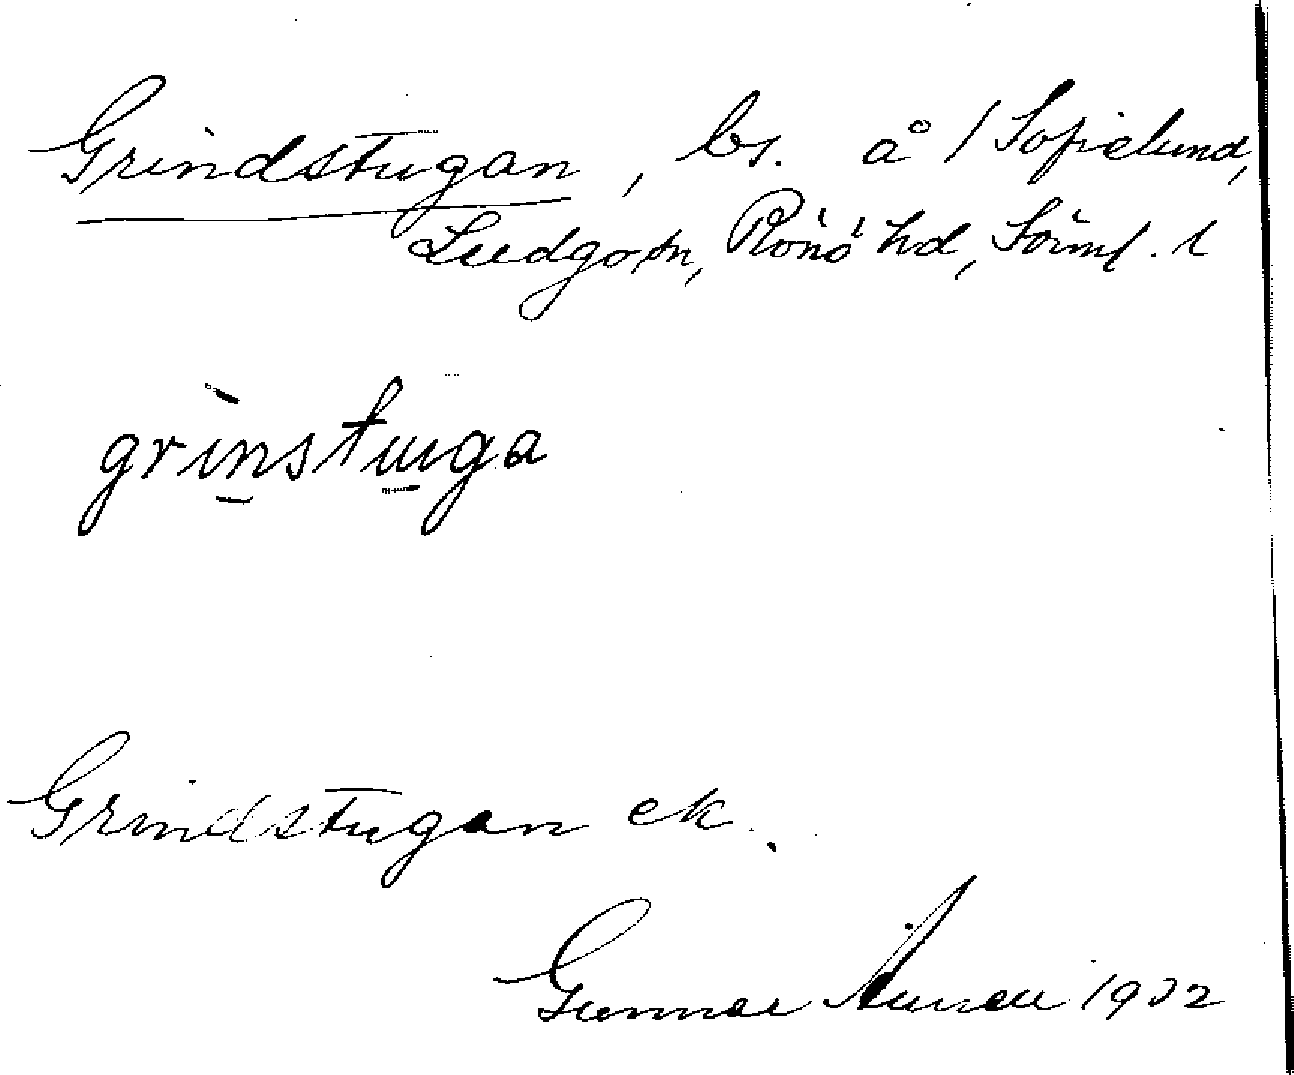 Grindstugan, bs. å / Sofielund,
Ludgo sn, Rönö hd, Sörml. l
grìnstuga
Grindstugan ek.
Gunnar 1932